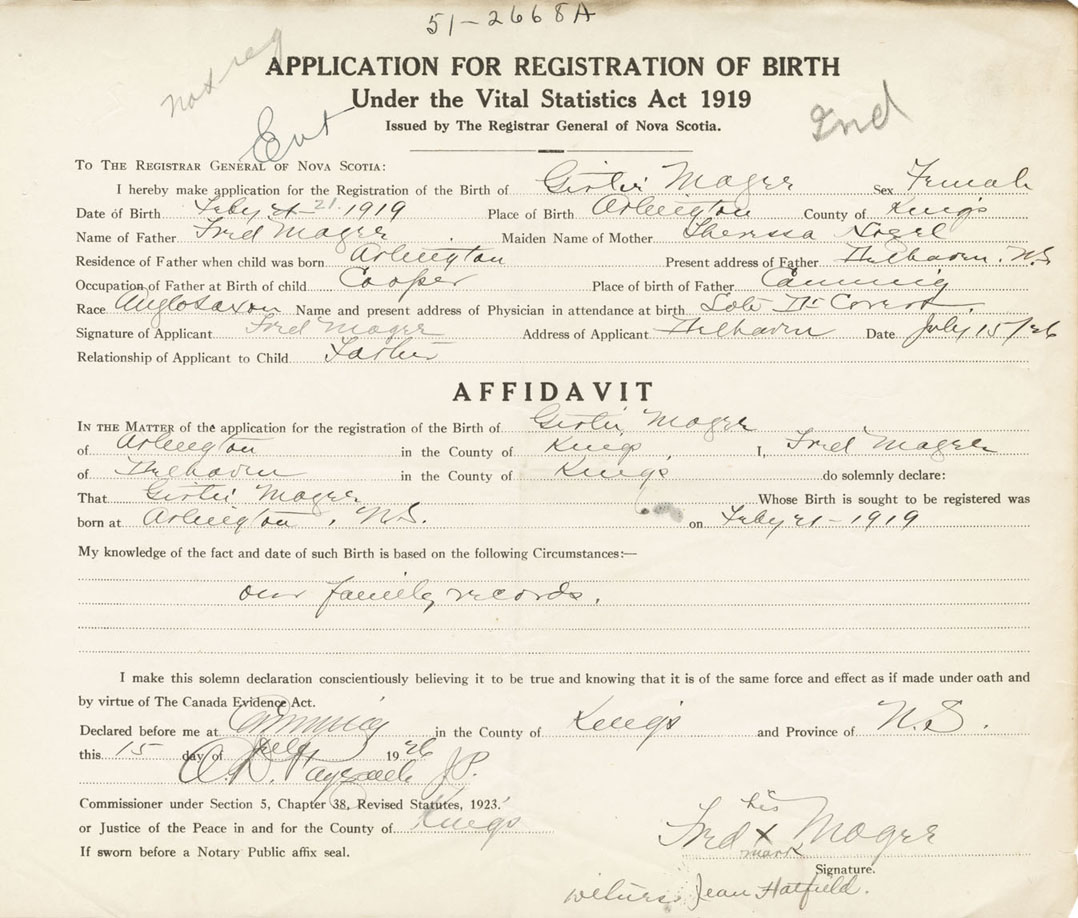 51-2668A
not reg
APPLICATION FOR REGISTRATION OF BIRTH
Under the Vital Statistics Act 1919
Ent
2nd
Issued by The Registrar General of Nova Scotia.
TO THE REGISTRAR GENERAL OF NOVA SCOTIA:
I hereby make application for the Registration of the Birth of Girtie Mager Sex Female
Date of Birth Feby 21 1919 Place of Birth Arlington County of Kings
Name of Father Fred Mager Maiden Name of Mother Theressa
Residence of Father when child was born Arlington Present address of Father N.S
Occupation of Father at Birth of child Cooper Place of birth of Father Canning
Race Anglosaxon Name and present address of Physician in attendance at birth Late Dr Covert
Signature of Applicant Fred Mager Address of Applicant Date July 15/26
Relationship of Applicant to Child Father
AFFIDAVIT
IN THE MATTER of the application for the registration of the Birth of Girtie Mager
of Arlington in the County of Kings I, Fred Mager
of in the County of Kings do solemnly declare:
That Girtie Mager Whose Birth is sought to be registered was
born at Arlington, N.S. on Feby 21-1919
My knowledge of the fact and date of such Birth is based on the following Circumstances:—
our family records.
I make this solemn declaration conscientiously believing it to be true and knowing that it is of the same force and effect as if made under oath and
by virtue of The Canada Evidence Act.
Declared before me at Canning in the County of Kings and Province of N.S.
this 15 day of July 1926
J.P.
Commissioner under Section 5, Chapter 38, Revised Statutes, 1923.
or Justice of the Peace in and for the County of Kings
If sworn before a Notary Public affix seal.
his
Fred x Mager
mark
Signature.
witness Jean Hatfield.